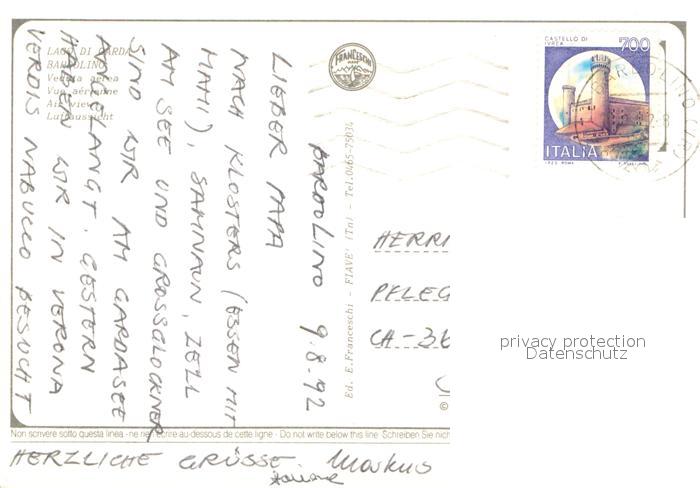 LAGO DI GARDA
BARDOLINO
Veduta aerea
Vue aérienne
Air view
Luftaussicht
FRANCESCHI
CASTELLO DI
IVREA
700
ITALIA
BARDOLINO 9.8.92
LIEBER PAPA
NACH KLOSTERS (ESSEN MIT
MAMI), SAMNAUN, ZELL
AM SEE UND GROSSGLOCKNER
SIND WIR AM GARDASEE
ANGELANGT. GESTERN
HABEN WIR IN VERONA
VERDIS NABUCCO BESUCHT
Ed. E.Franceschi - FIAVE' (Tn) - Tel.0465-75034
HERRN
PFLEG
CH-36
privacy protection
Datenschutz
Non scrivere sotto questa linea - ne rien écrire au-dessous de cette ligne - Do not write below this line Schreiben Sie nich
HERZLICHE GRÜSSE Markus